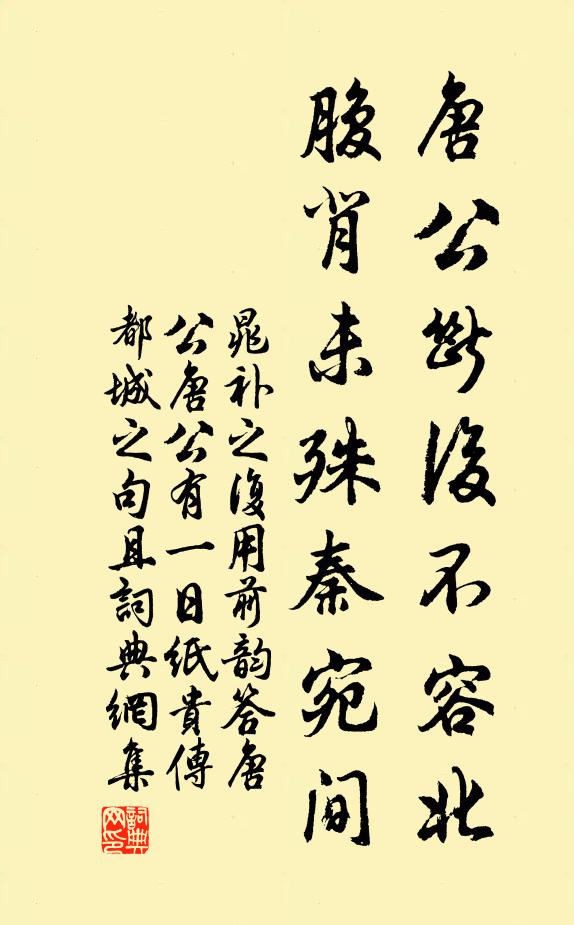 唐公斷後不容北
腹背未殊秦宛间
晁补之復用前韵答唐
公唐公有一日紙貴傳
都城之句且詞典網集
詞典網印